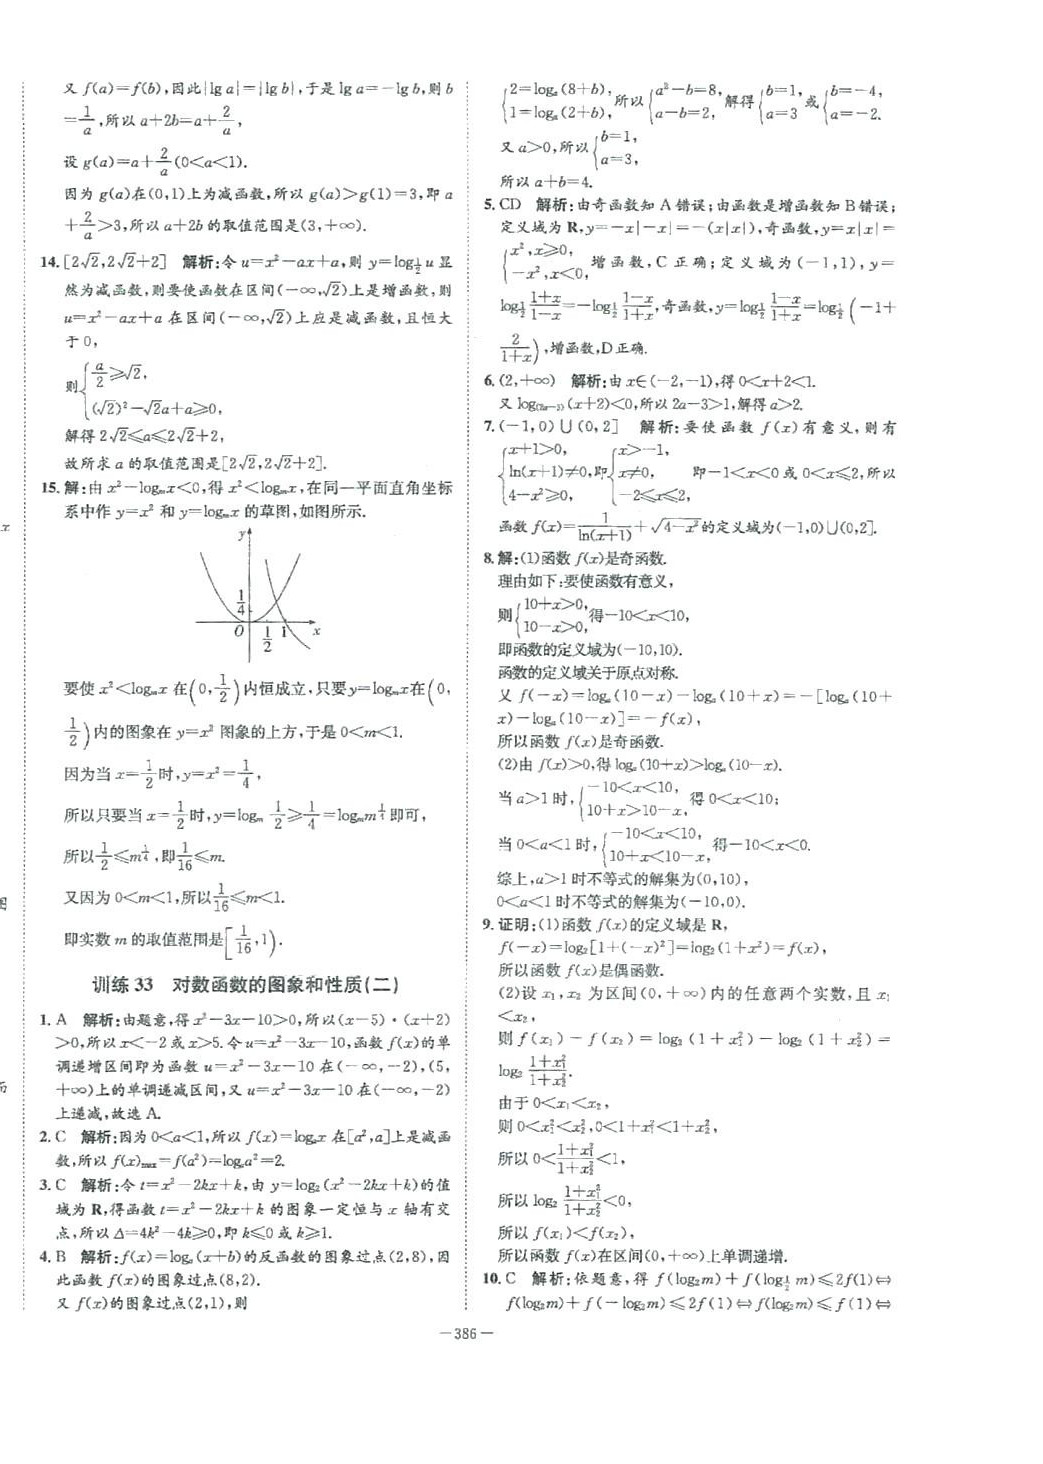 又 f(a)=f(b),因此|lg a|=|lg b|,于是 lg a=-lg b,则 b
=1/a,所以 a+2b=a+2/a,
设 g(a)=a+2/a(0<a<1).
因为 g(a)在(0,1)上为减函数,所以 g(a)>g(1)=3,即 a
+2/a>3,所以 a+2b 的取值范围是(3,+∞).
14.[2√2,2√2+2] 解析:令 u=x²-ax+a,则 y=log_{1/2} u 显
然为减函数,则要使函数在区间(-∞,√2)上是增函数,则
u=x²-ax+a 在区间(-∞,√2)上应是减函数,且恒大
于 0,
则{a/2≥√2,
(√2)²-√2a+a≥0,
解得 2√2≤a≤2√2+2,
故所求 a 的取值范围是[2√2,2√2+2].
15.解:由 x²-logₘx<0,得 x²<logₘx,在同一平面直角坐标
系中作 y=x² 和 y=logₘx 的草图,如图所示.
y
1/4
O 1/2 1 x
要使 x²<logₘx 在(0,1/2)内恒成立,只要y=logₘx在(0,
1/2)内的图象在 y=x² 图象的上方,于是 0<m<1.
因为当 x=1/2时,y=x²=1/4,
所以只要当 x=1/2时,y=logₘ 1/2≥1/4=logₘm^{1/4}即可,
所以1/2≤m^{1/4},即1/16≤m.
又因为 0<m<1,所以1/16≤m<1.
即实数 m 的取值范围是[1/16,1).
训练 33 对数函数的图象和性质(二)
1.A 解析:由题意,得 x²-3x-10>0,所以(x-5)·(x+2)
>0,所以 x<-2 或 x>5.令 u=x²-3x-10,函数 f(x)的单
调递增区间即为函数 u=x²-3x-10 在(-∞,-2),(5,
+∞)上的单调递减区间,又 u=x²-3x-10 在(-∞,-2)
上递减,故选 A.
2.C 解析:因为 0<a<1,所以 f(x)=logₐx 在[a²,a]上是减函
数,所以 f(x)ₘₐₓ=f(a²)=logₐa²=2.
3.C 解析:令 t=x²-2kx+k,由 y=log₂(x²-2kx+k)的值
域为 R,得函数 t=x²-2kx+k 的图象一定恒与 x 轴有交
点,所以 Δ=4k²-4k≥0,即 k≤0 或 k≥1.
4.B 解析:f(x)=logₐ(x+b)的反函数的图象过点(2,8),因
此函数 f(x)的图象过点(8,2).
又 f(x)的图象过点(2,1),则
{2=logₐ(8+b),
1=logₐ(2+b),所以{a²-b=8,
a-b=2,解得{b=1,
a=3或{b=-4,
a=-2.
又 a>0,所以{b=1,
a=3,
所以 a+b=4.
5.CD 解析:由奇函数知 A 错误;由函数是增函数知 B 错误;
定义域为 R,y=-x|-x|=-(x|x|),奇函数,y=x|x|=
{x²,x≥0,
-x²,x<0,增函数,C 正确;定义域为(-1,1),y=
log_{1/2} (1+x)/(1-x)=-log_{1/2} (1-x)/(1+x),奇函数,y=log_{1/2} (1-x)/(1+x)=log_{1/2}(-1+
2/(1+x)),增函数,D 正确.
6.(2,+∞) 解析:由 x∈(-2,-1),得 0<x+2<1.
又 log_{(2a-3)}(x+2)<0,所以 2a-3>1,解得 a>2.
7.(-1,0)∪(0,2] 解析:要使函数 f(x)有意义,则有
{x+1>0,
ln(x+1)≠0,
4-x²≥0,即{x>-1,
x≠0,
-2≤x≤2,即-1<x<0 或 0<x≤2,所以
函数 f(x)=1/ln(x+1)+√(4-x²)的定义域为(-1,0)∪(0,2].
8.解:(1)函数 f(x)是奇函数.
理由如下:要使函数有意义,
则{10+x>0,
10-x>0,得-10<x<10,
即函数的定义域为(-10,10).
函数的定义域关于原点对称.
又 f(-x)=logₐ(10-x)-logₐ(10+x)=-[logₐ(10+
x)-logₐ(10-x)]=-f(x),
所以函数 f(x)是奇函数.
(2)由 f(x)>0,得 logₐ(10+x)>logₐ(10-x).
当 a>1 时,{-10<x<10,
10+x>10-x,得 0<x<10;
当 0<a<1 时,{-10<x<10,
10+x<10-x,得-10<x<0.
综上,a>1 时不等式的解集为(0,10),
0<a<1 时不等式的解集为(-10,0).
9.证明:(1)函数 f(x)的定义域是 R,
f(-x)=log₂[1+(-x)²]=log₂(1+x²)=f(x),
所以函数 f(x)是偶函数.
(2)设 x₁,x₂ 为区间(0,+∞)内的任意两个实数,且 x₁
<x₂,
则 f(x₁)-f(x₂)=log₂(1+x₁²)-log₂(1+x₂²)=
log₂ (1+x₁²)/(1+x₂²).
由于 0<x₁<x₂,
则 0<x₁²<x₂²,0<1+x₁²<1+x₂²,
所以 0<(1+x₁²)/(1+x₂²)<1,
所以 log₂ (1+x₁²)/(1+x₂²)<0,
所以 f(x₁)<f(x₂),
所以函数 f(x)在区间(0,+∞)上单调递增.
10.C 解析:依题意,得 f(log₂m)+f(log_{1/2} m)≤2f(1)⇔
f(log₂m)+f(-log₂m)≤2f(1)⇔f(log₂m)≤f(1)⇔
—386—